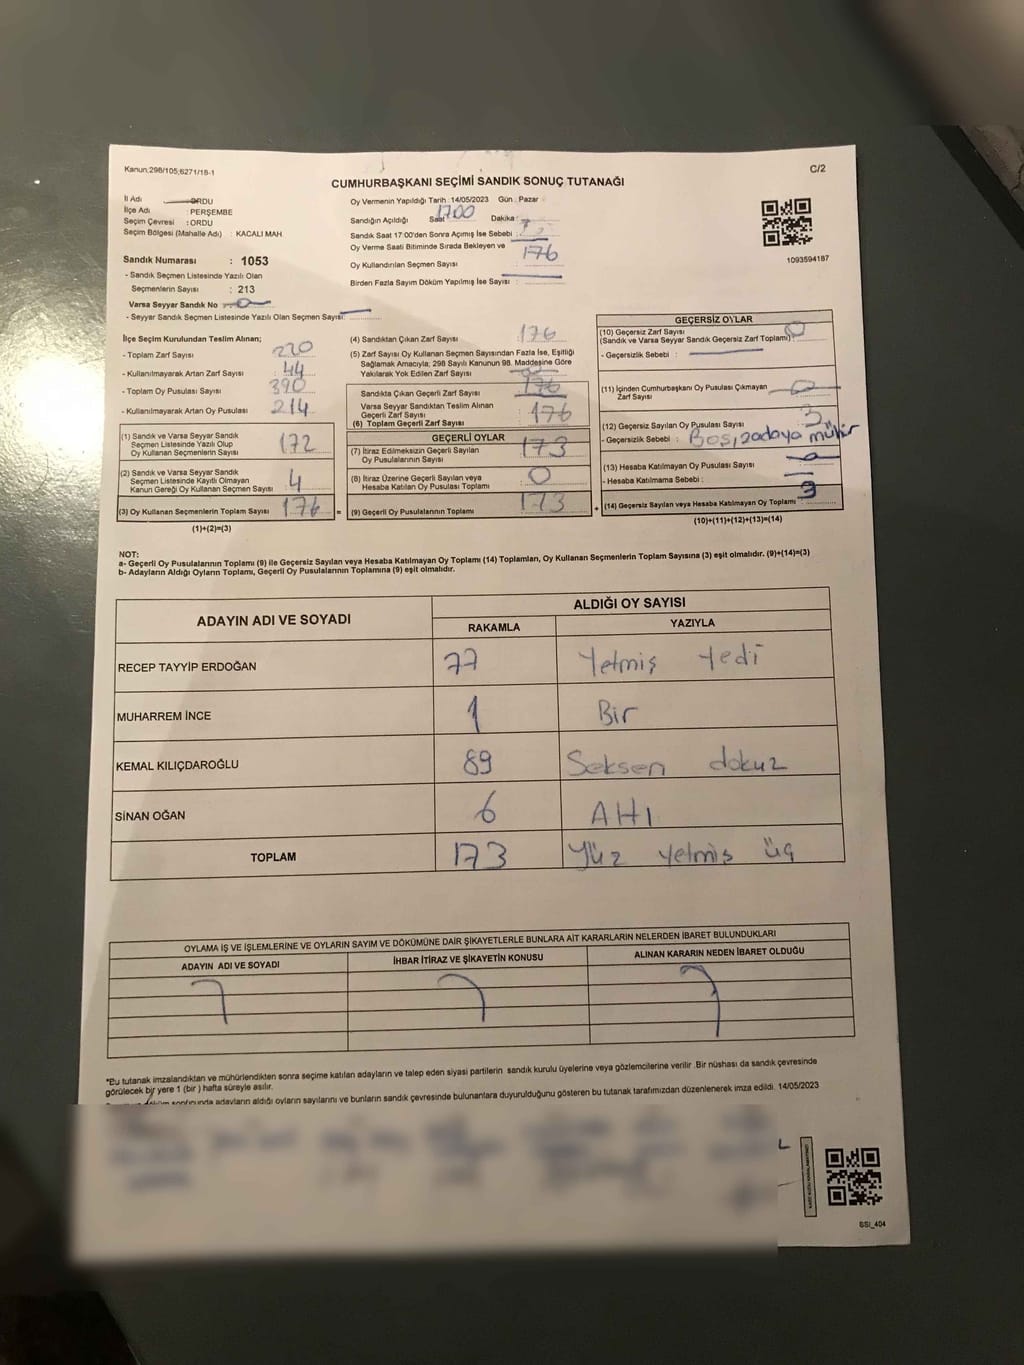 Kanun;298/105;6271/18-1
C/2
CUMHURBAŞKANI SEÇİMİ SANDIK SONUÇ TUTANAĞI
İl Adı ORDU
İlçe Adı : PERŞEMBE
Seçim Çevresi : ORDU
Seçim Bölgesi (Mahalle Adı) : KACALI MAH
Sandık Numarası : 1053
- Sandık Seçmen Listesinde Yazılı Olan
Seçmenlerin Sayısı : 213
Varsa Seyyar Sandık No
- Seyyar Sandık Seçmen Listesinde Yazılı Olan Seçmen Sayısı:
Oy Vermenin Yapıldığı Tarih : 14/05/2023 Gün : Pazar
Sandığın Açıldığı Saat 1700 Dakika :
Sandık Saat 17:00'den Sonra Açımış İse Sebebi :
Oy Verme Saati Bitiminde Sırada Bekleyen ve
Oy Kullandırılan Seçmen Sayısı 176
Birden Fazla Sayım Döküm Yapılmış İse Sayısı :
1093594187
İlçe Seçim Kurulundan Teslim Alınan;
- Toplam Zarf Sayısı 220
- Kullanılmayarak Artan Zarf Sayısı : 44
- Toplam Oy Pusulası Sayısı 390
- Kullanılmayarak Artan Oy Pusulası 214
(1) Sandık ve Varsa Seyyar Sandık
Seçmen Listesinde Yazılı Olup
Oy Kullanan Seçmenlerin Sayısı 172
(2) Sandık ve Varsa Seyyar Sandık
Seçmen Listesinde Kayıtlı Olmayan
Kanun Gereği Oy Kullanan Seçmen Sayısı 4
(3) Oy Kullanan Seçmenlerin Toplam Sayısı 176 =
(1)+(2)=(3)
(4) Sandıktan Çıkan Zarf Sayısı : 176
(5) Zarf Sayısı Oy Kullanan Seçmen Sayısından Fazla İse, Eşitliği
Sağlamak Amacıyla; 298 Sayılı Kanunun 98. Maddesine Göre
Yakılarak Yok Edilen Zarf Sayısı
Sandıkta Çıkan Geçerli Zarf Sayısı 176
Varsa Seyyar Sandıktan Teslim Alınan
Geçerli Zarf Sayısı
(6) Toplam Geçerli Zarf Sayısı : 176
GEÇERLİ OYLAR
(7) İtiraz Edilmeksizin Geçerli Sayılan
Oy Pusulalarının Sayısı 173
(8) İtiraz Üzerine Geçerli Sayılan veya
Hesaba Katılan Oy Pusulası Toplamı 0
(9) Geçerli Oy Pusulalarının Toplamı 173 +
GEÇERSİZ OYLAR
(10) Geçersiz Zarf Sayısı
(Sandık ve Varsa Seyyar Sandık Geçersiz Zarf Toplamı) : 0
- Geçersizlik Sebebi :
(11) İçinden Cumhurbaşkanı Oy Pusulası Çıkmayan
Zarf Sayısı
(12) Geçersiz Sayılan Oy Pusulası Sayısı 3
- Geçersizlik Sebebi : Boş,
(13) Hesaba Katılmayan Oy Pusulası Sayısı
- Hesaba Katılmama Sebebi :
(14) Geçersiz Sayılan veya Hesaba Katılmayan Oy Toplamı 3
(10)+(11)+(12)+(13)=(14)
NOT:
a- Geçerli Oy Pusulalarının Toplamı (9) ile Geçersiz Sayılan veya Hesaba Katılmayan Oy Toplamı (14) Toplamları, Oy Kullanan Seçmenlerin Toplam Sayısına (3) eşit olmalıdır. (9)+(14)=(3)
b- Adayların Aldığı Oyların Toplamı, Geçerli Oy Pusulalarının Toplamına (9) eşit olmalıdır.
ADAYIN ADI VE SOYADI
ALDIĞI OY SAYISI
RAKAMLA YAZIYLA
RECEP TAYYİP ERDOĞAN 77 Yetmiş Yedi
MUHARREM İNCE 1 Bir
KEMAL KILIÇDAROĞLU 89 Seksen dokuz
SİNAN OĞAN 6 Altı
TOPLAM 173 Yüz yetmiş üç
OYLAMA İŞ VE İŞLEMLERİNE VE OYLARIN SAYIM VE DÖKÜMÜNE DAİR ŞİKAYETLERLE BUNLARA AİT KARARLARIN NELERDEN İBARET BULUNDUKLARI
ADAYIN ADI VE SOYADI İHBAR İTİRAZ VE ŞİKAYETİN KONUSU ALINAN KARARIN NEDEN İBARET OLDUĞU
*Bu tutanak imzalandıktan ve mühürlendikten sonra seçime katılan adayların ve talep eden siyasi partilerin sandık kurulu üyelerine veya gözlemcilerine verilir .Bir nüshası da sandık çevresinde
görülecek bir yere 1 (bir ) hafta süreyle asılır.
sonucunda adayların aldığı oyların sayılarını ve bunların sandık çevresinde bulunanlara duyurulduğunu gösteren bu tutanak tarafımızdan düzenlenerek imza edildi. 14/05/2023
SSİ_404